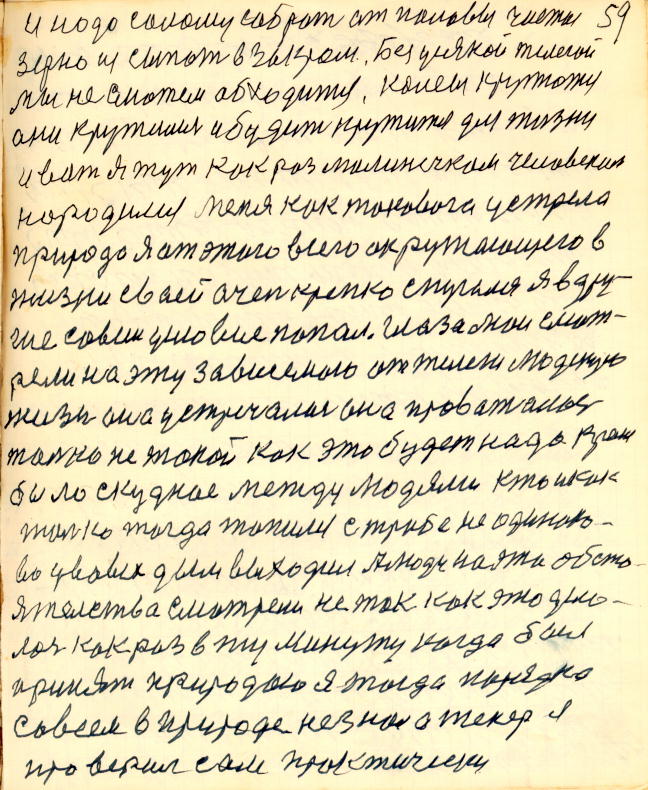 и надо солому собрат от половы чистая 59
зерно и сыпат в закром. Без усякой телегой
мы не сможем обходится, колеса крутожу
они крутилис и будут крутится для жизни
и вот я тут как раз малинечком человеком
народился меня как токовога устрела
природа я от этого всего окружающего в
жизни своей очен крепко спугался я в дру-
гие совсем условие попал. глаза мои смот-
рели на эту зависемого от телеги людскую
жизн она устречалас она проважалас
толко не такой как это будет надо
было скудное между людями кто и как
толко тогда топился с трубе не одинако-
во увовсех дым выходил А люди на эти обсто-
ятелства смотрели не так как это дела-
лос как раз в ту минуту когда был
принят природою я тогда порядка
совсем в природе не знал а тепер я
проверил сам практически